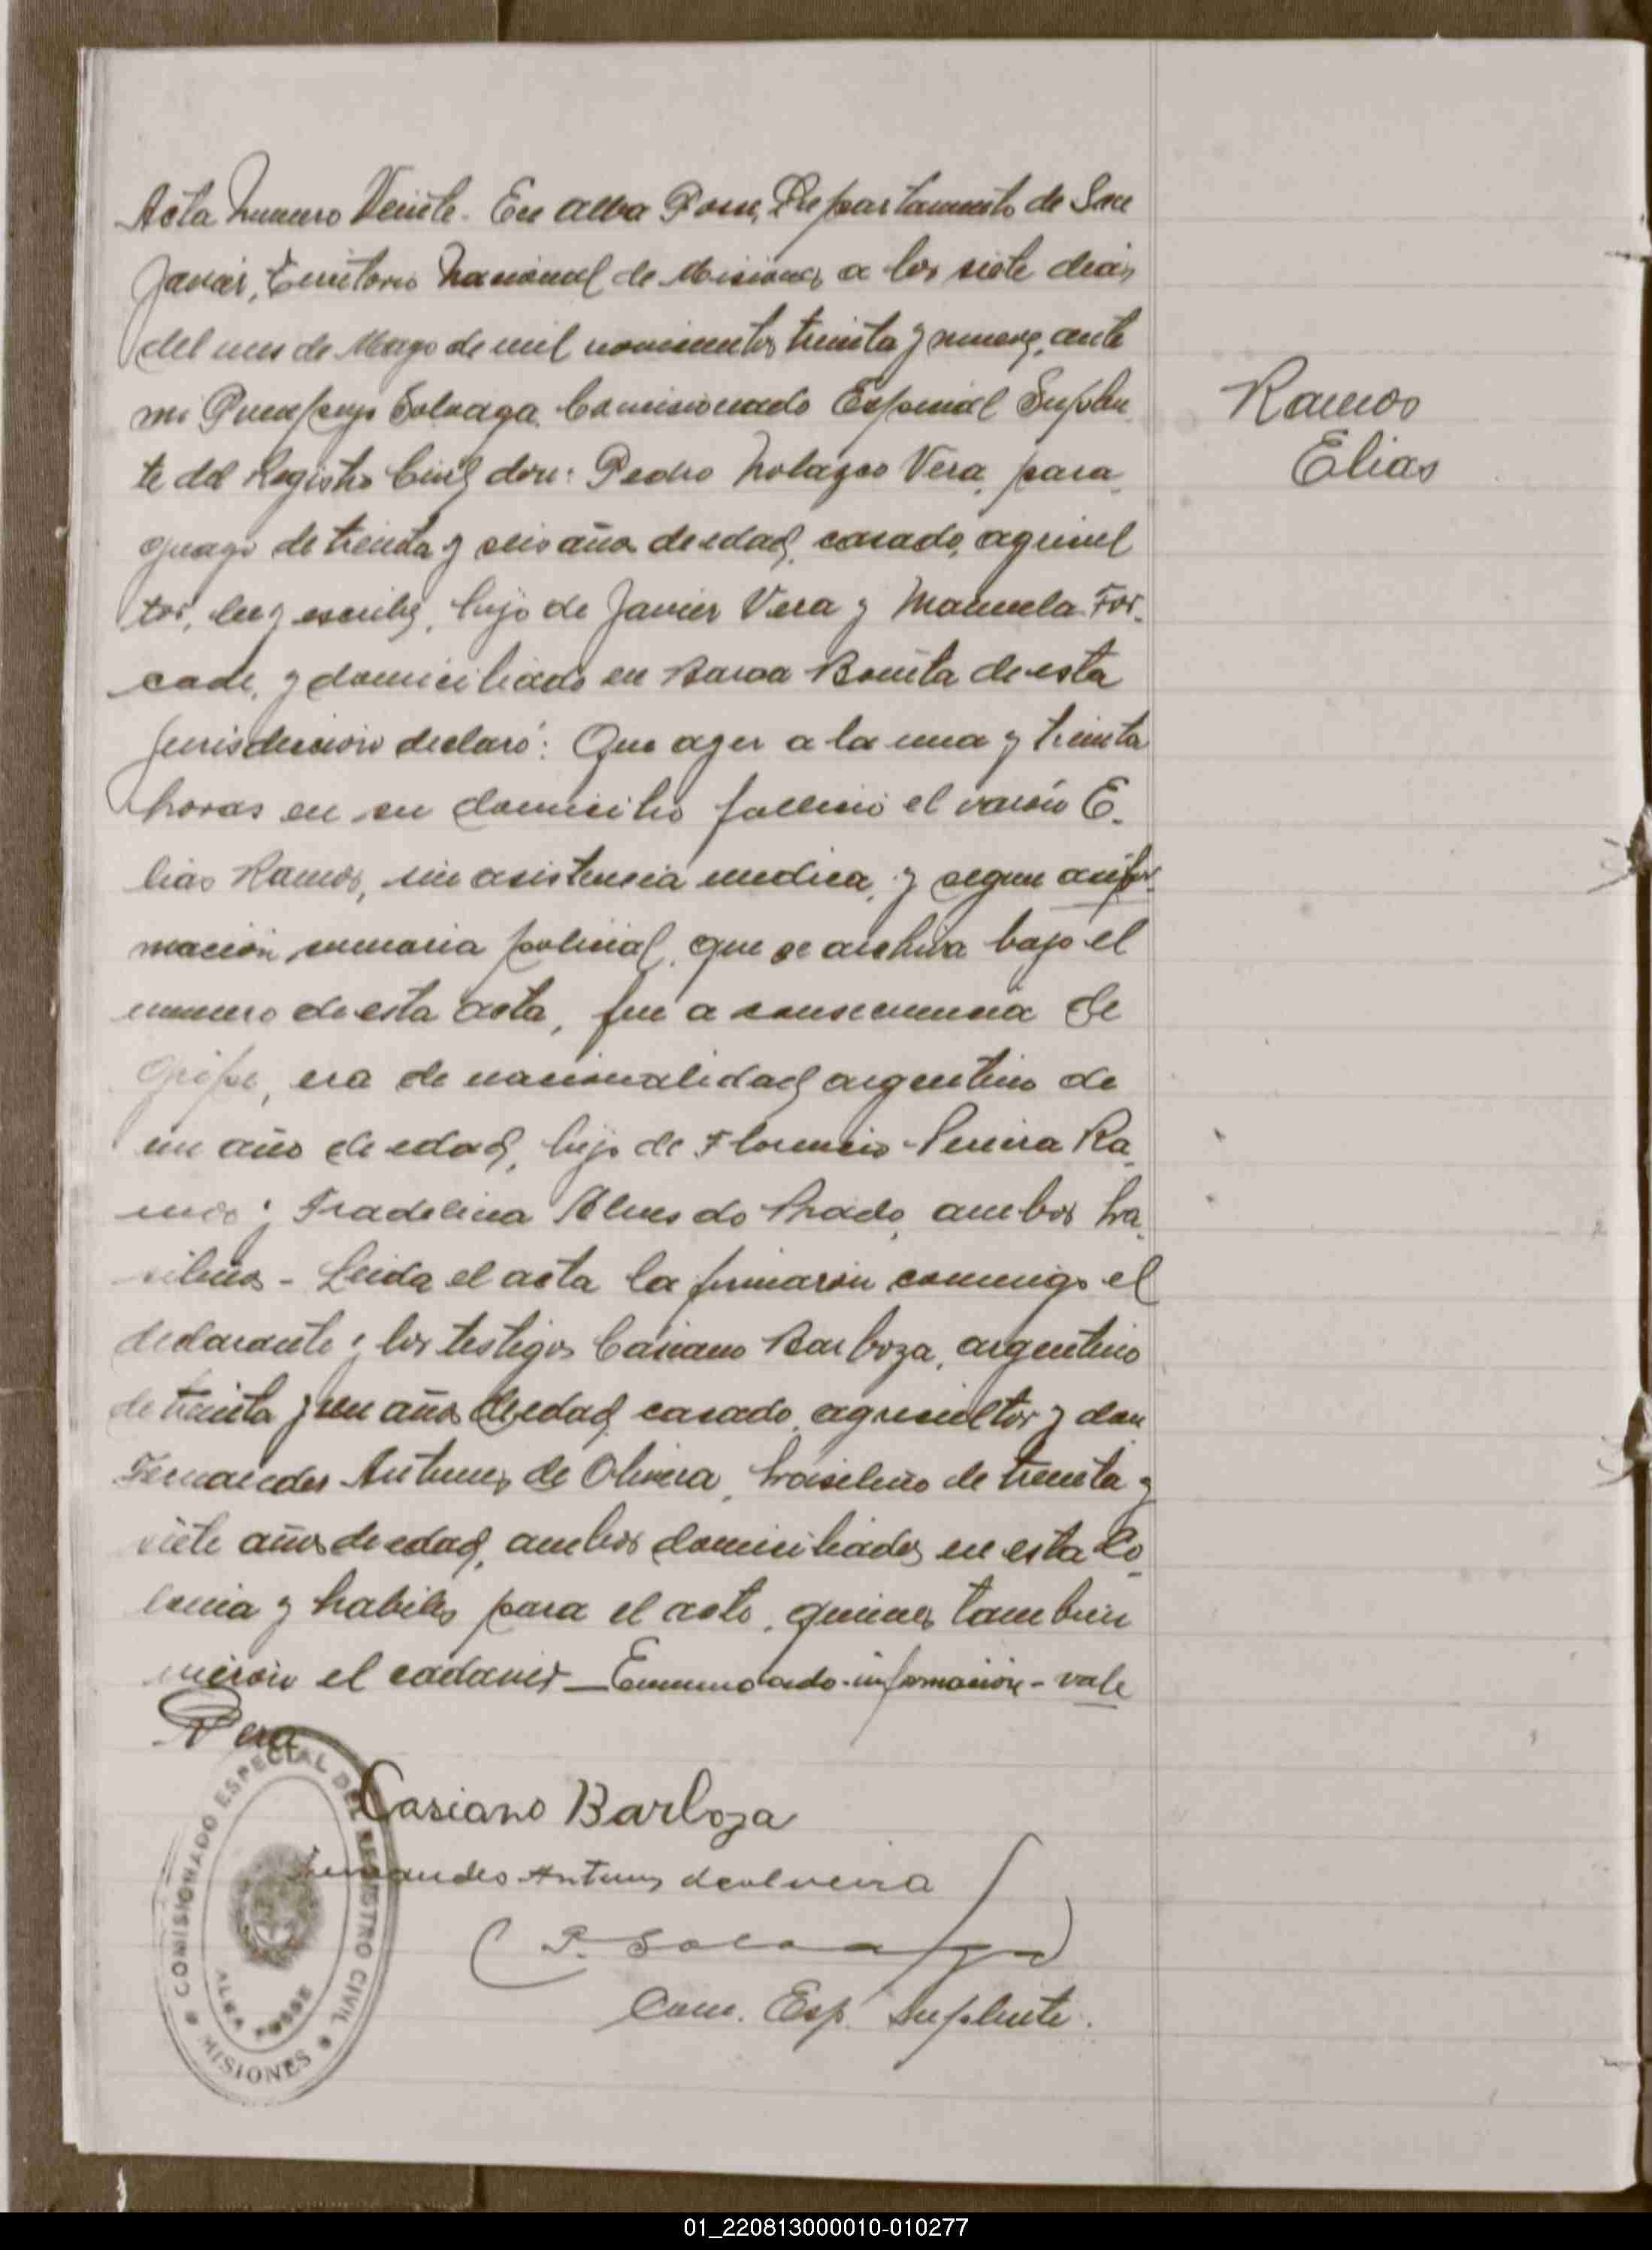 Acta Numero Veinte. En Alba Posse, Departamento de San
Javier, Territorio Nacional de Misiones a los siete dias
del mes de Mayo de mil novecientos treinta y nueve, ante
mi Pompeyo Solvaga Comisionado Especial Suplen-
te del Registro Civil don: Pedro Nolazco Vera, para-
guayo de treinta y seis años de edad, casado, agricul
tor, lee y escribe, hijo de Javier Vera y Manuela For-
cade, y domiciliado en Barra Bonita de esta
jurisdiccion declaró: Que ayer a la una y treinta
horas en su domicilio fallecio el varón E-
lias Ramos, sin asistencia medica, y segun infor-
macion sumaria policial, que se archiva bajo el
numero de esta acta, fue a consecuencia de
Gripe, era de nacionalidad argentino de
un año de edad, hijo de Florencio Pereira Ra-
mos y Fradelina Alves do Prado, ambos bra-
sileños - Leida el acta la firmaron conmigo el
declarante y los testigos Casiano Barboza, argentino
de treinta y un años de edad, casado, agricultor y don
Fernandes Antunes de Olivera, brasileño de treinta y
siete años de edad, ambos domiciliados en esta Co-
lonia y habiles para el acto, quienes tambien
vieron el cadaver - Enmendado - informacion - vale
Ramos
Elias
P Vera
Casiano Barboza
Fernandes Antunes deolueira
P. Solvaga
Com. Esp. Suplente.
COMISIONADO ESPECIAL DEL REGISTRO CIVIL
ALBA POSSE
MISIONES
01_220813000010-010277